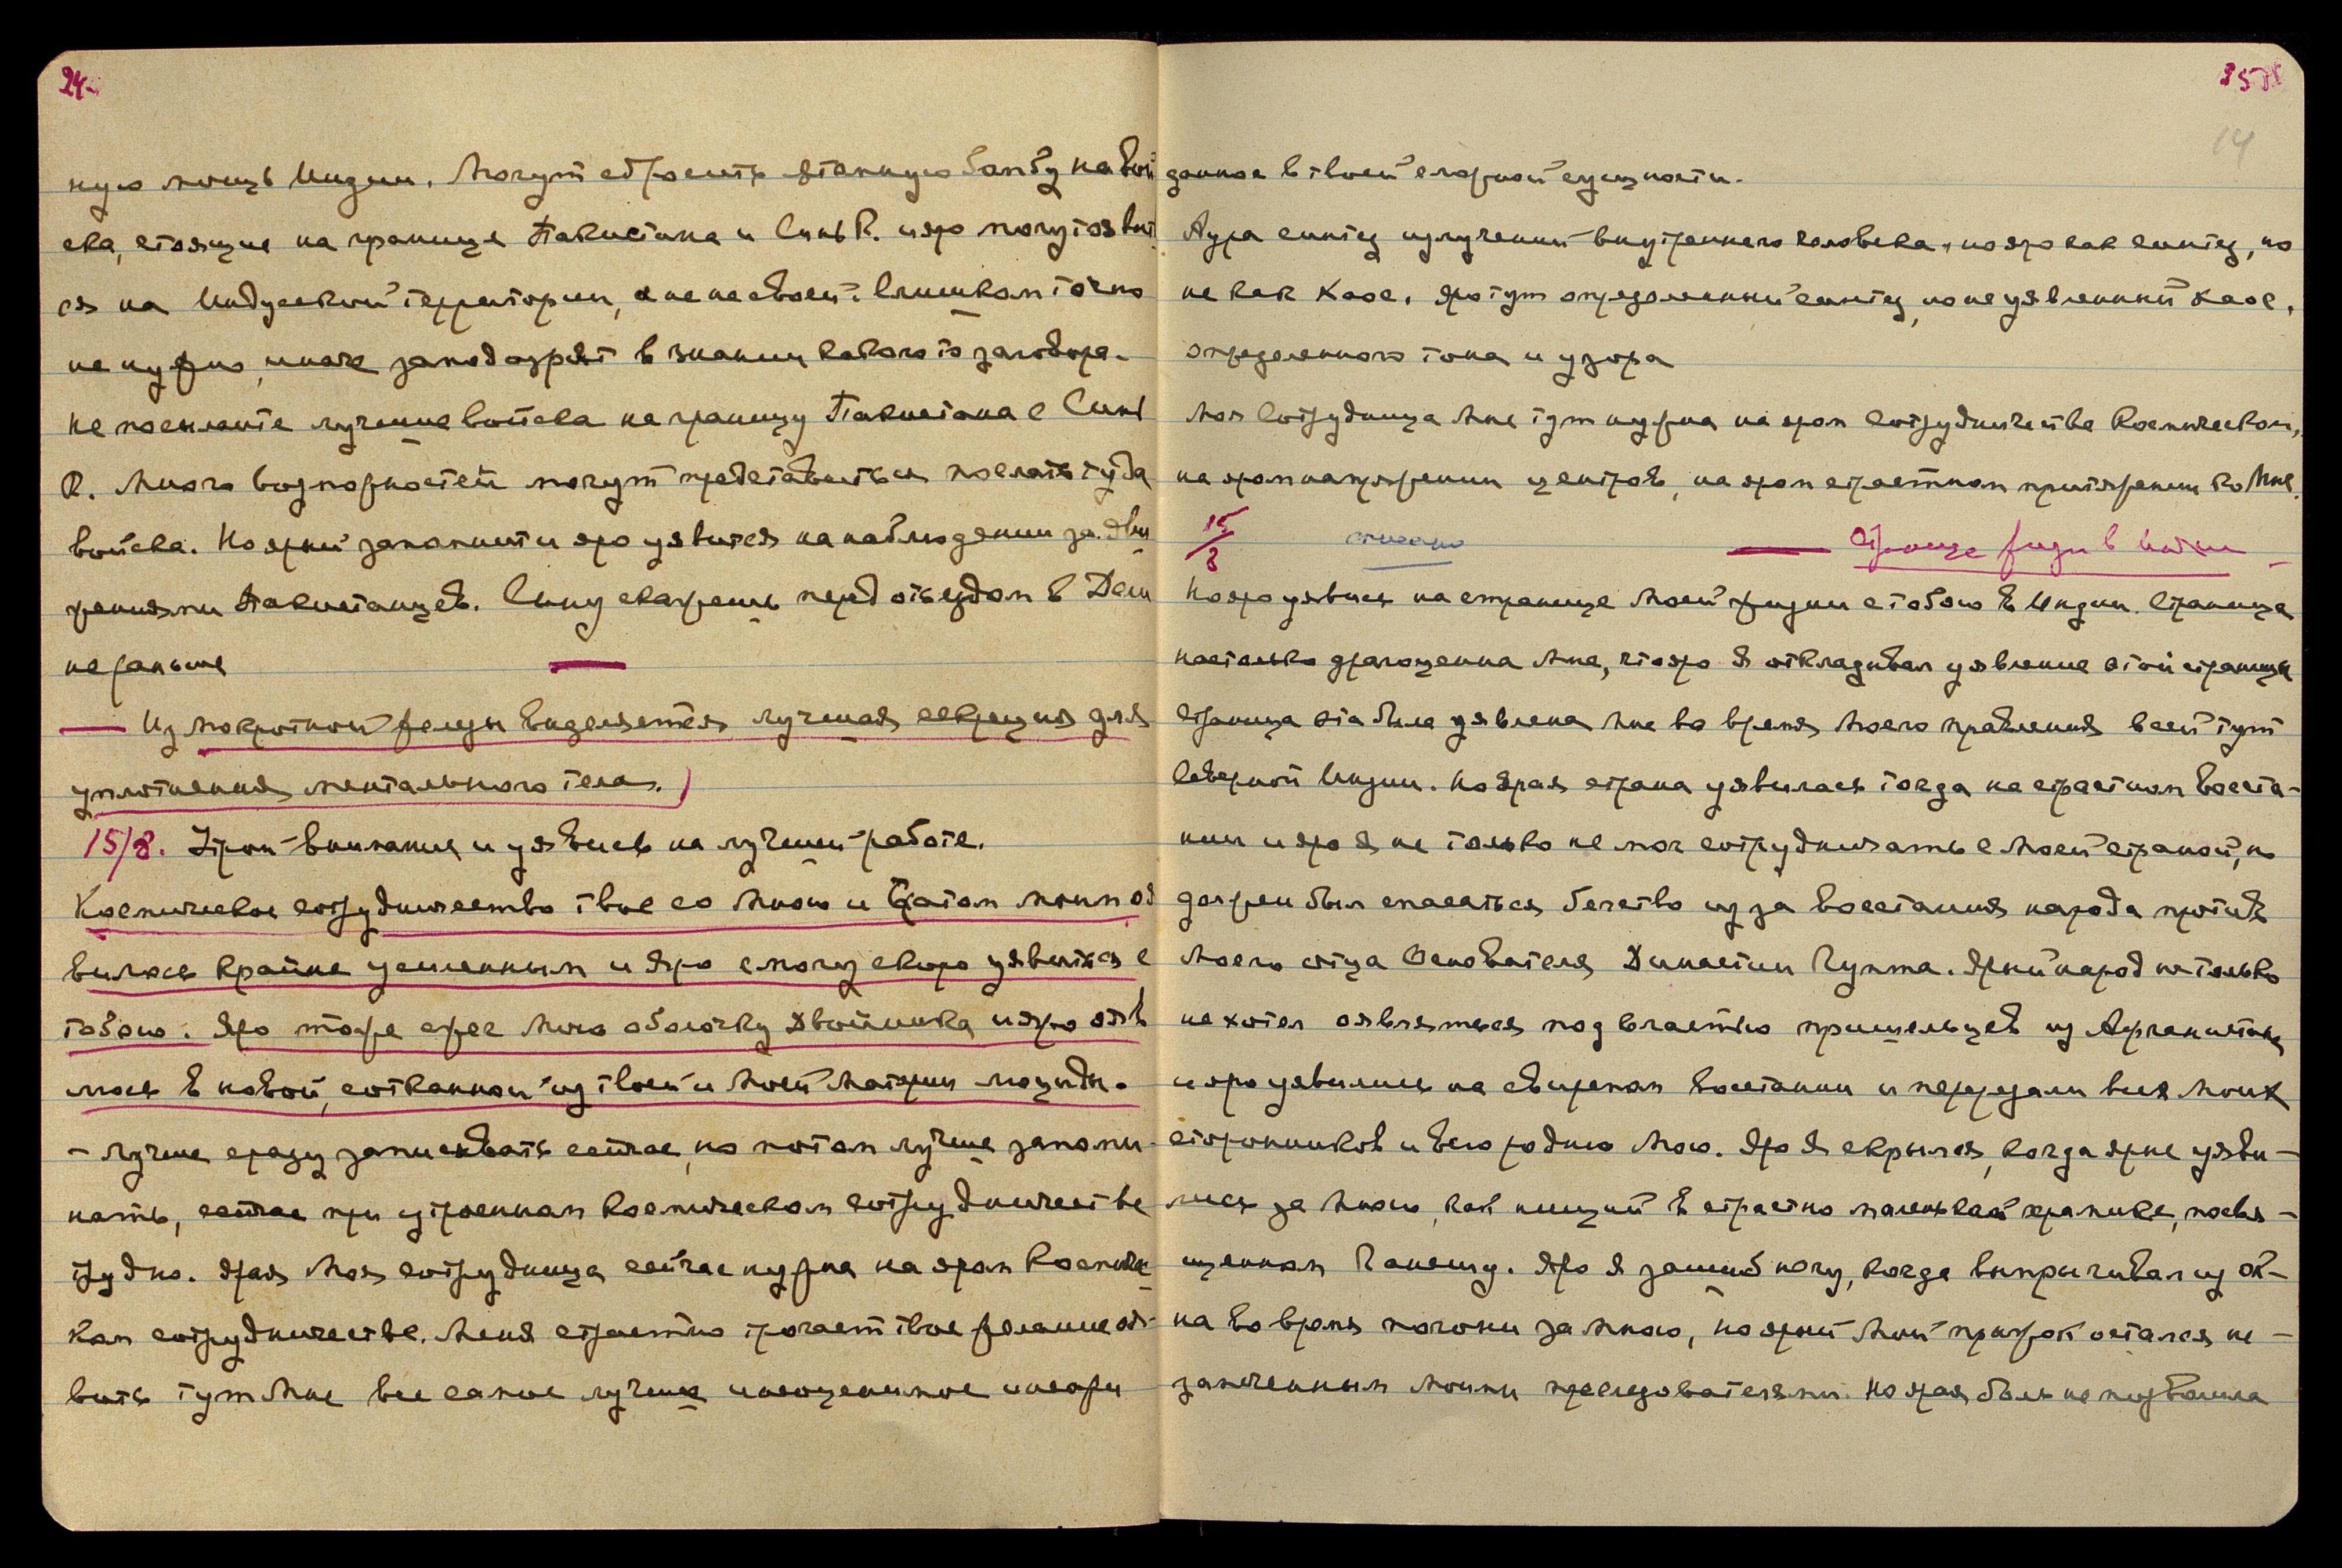 24.
ную мощь Индии. Могут сбросить атомную бомбу на вой
ска, стоящие на границе Пакистана и Синь К. и яро могут явит
ся на Индусской территории, а не на своей. Слишком точно
не нужно, иначе заподозрят в знании какого то заговора.
Не посылайте лучшие войска на границу Пакистана с Синь
К. Много возможностей могут представиться послать туда
войска. Но ярый запомнит и яро уявится на наблюдении за дви
жениями Пакистанцев. Сину скажешь перед отъездом в Дели
не раньше
— Из мокротной железы выделяется лучшая секреция для
уплотнения ментального тела.)
15/8. Утрой внимание и уявись на лучшей работе.
Космическое сотрудничество твое со Мною и Братом Моим оя
вилось крайне усиленным и яро смогу скоро уявиться с
тобою. Яро тоже сжег Мою оболочку двойника и яро ояв
люсь в новой, сотканной из твоей и Моей Материи Люциды.
– Лучше сразу записывать сейчас, но потом лучше запоми-
нать, сейчас при утроенном космическом сотрудничестве
трудно. Ярая Моя сотрудница сейчас нужна на яром Космиче
ком сотрудничестве. Меня страстно трогает твое желание оя-
вить тут Мне все самое лучшее и неоценимое
35
14
данное в твоей сущности.
Аура синтез излучений внутреннего человека, но яро как синтез, но
не как хаос. Яро тут определенный синтез, но не уявленный хаос,
определенного тона и узора
Моя Сотрудница Мне тут нужна на яром сотрудничестве Космическом,
на яром напряжении центров, на яром страстном притяжении ко Мне.
15/8 списано — Страница жизни в Индии
Но яро уявись на странице Моей жизни с тобою в Индии. Страница
настолько драгоценна Мне, что яро Я откладывал уявление этой страницы
Страница эта была уявлена Мне во время Моего правления всей тут
Северной Индии. Но ярая страна уявилась тогда на страстном восста-
нии и яро Я не только не мог сотрудничать с Моей страной, но
должен был спасаться бегством из за восстания народа против
Моего отца Основателя Династии Гупта. Ярый народ не только
не хотел оявляться под властью пришельцев из Афганистана
и яро уявились на свирепом восстании и перерезали всех Моих
сторонников и всю родню Мою. Яро Я скрылся, когда ярые уяви-
лись за Мною, как нищий в страстно маленьком храмике, посвя-
щенном Ганешу. Яро Я зашиб ногу, когда выпрыгивал из ок-
на во время погони за Мною, но ярый Мой прыжок остался не-
замеченным Моими преследователями. Но ярая боль не позволила